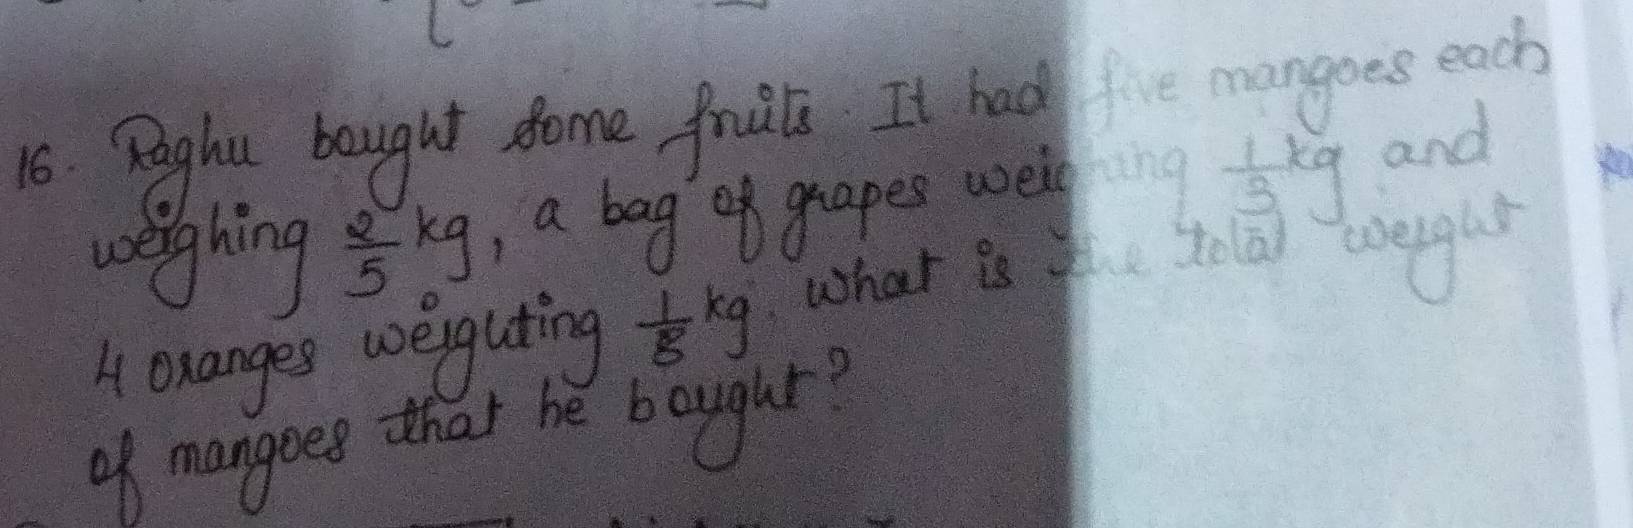 16. Raghu bought some fruits. It had five mangoes each
weighing 2/5 kg, a bag of grapes weighing 1/3 kg and
4 oranges weiguting 1/8 kg. what is the total weight
of mangoes that he bought?